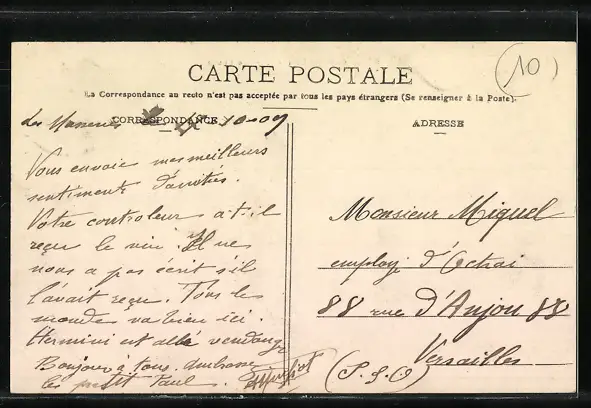 (10)
CARTE POSTALE
La Correspondance au recto n'est pas acceptée par tous les pays étrangers (Se renseigner à la Poste).
CORRESPONDANCE
10-09
Vous envoie mes meilleurs
sentiments d'amitiés.
Votre controleur a t-il
reçu le vin. Il ne
nous a pas écrit s'il
l'avait reçu. Tous le
monde va bien ici.
Hermini et allé vendange
Bonjour à tous. embrasse
les petit Paul.
ADRESSE
Monsieur Miquel
employé d'Octroi
88 rue d'Anjou 88
Versailles
(S.&O)